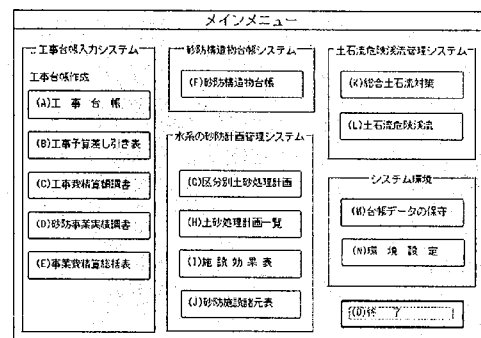 メインメニュー
工事台帳入力システム
工事台帳作成
(A)工 事 台 帳
(B)工事予算差し引き表
(C)工事費積算額調書
(D)砂防事業実績調書
(E)事業費積算総括表
砂防構造物台帳システム
(F)砂防構造物台帳
水系の砂防計画管理システム
(G)区分別土砂処理計画
(H)土砂処理計画一覧
(I)施 設 効 果 表
(J)砂防施設諸元表
土石流危険渓流管理システム
(K)総合土石流対策
(L)土石流危険渓流
システム環境
(M)台帳データの保守
(N)環 境 設 定
(O)終 了